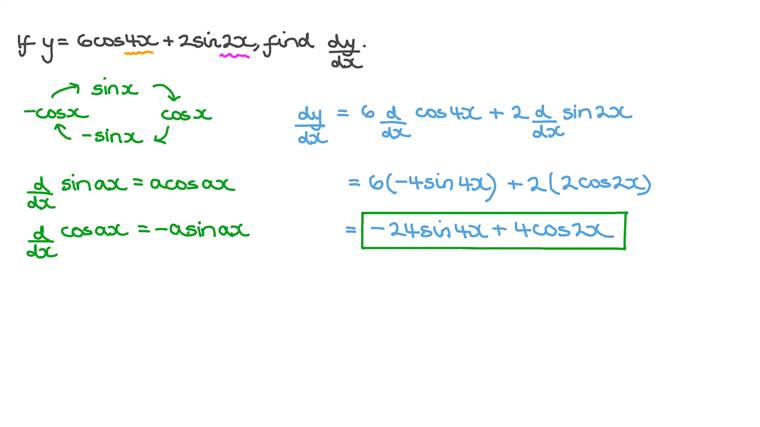 If y = 6cos4x + 2sin2x, find dy/dx.
sinx
-cosx cosx
-sinx
d/dx sinax = acosax
d/dx cosax = -asinax
dy/dx = 6 d/dx cos4x + 2 d/dx sin2x
= 6(-4sin4x) + 2(2cos2x)
= -24sin4x + 4cos2x